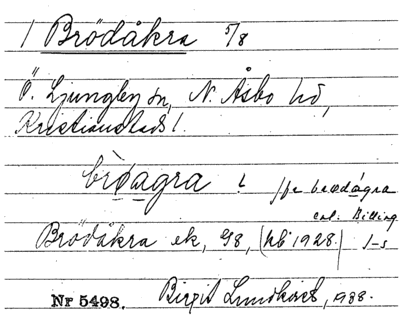 / Brödåkra 5/8
Ö. Ljungby sn, N. Åsbo hd,
Kristianstads l.
brøagra l /fe brædágra
enl. Billing
Brödåkra ek, 98, (hb 1928) 1-s
Nr 5498. Birgit Lundkvist, 1938.